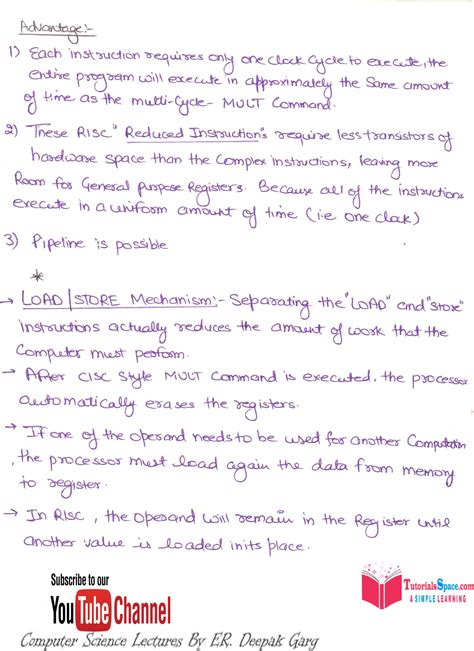 Advantage:-
1) Each instruction requires only one clock cycle to execute, the
entire program will execute in approximately the same amount
of time as the multi-cycle- MULT Command.
2) These RISC "Reduced Instructions" require less transistors of
hardware space than the complex instructions, leaving more
Room for General purpose Registers. Because all of the instructions
execute in a uniform amount of time (ie one clock)
3) Pipeline is possible
*
→ LOAD/STORE Mechanism:- Separating the "LOAD" and "store"
instructions actually reduces the amount of work that the
Computer must perform.
→ After CISC Style MULT Command is executed, the processor
automatically erases the registers.
→ If one of the operand needs to be used for another Computation
, the processor must load again the data from memory
to register.
→ In RISC, the operand will remain in the Register until
another value is loaded in its place.
Subscribe to our
YouTube Channel
TutorialsSpace.com
A SIMPLE LEARNING
Computer Science Lectures By ER. Deepak Garg